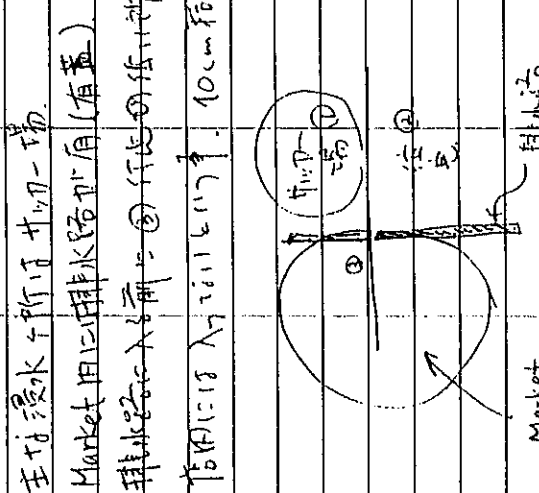 主な浸水ヶ所はサッカー場.
Market 内に排水路が有(有蓋)
排水路に入る前に③付近の低い
店内には入っていない. 10cm
サッカー場 ①
②
③
排水路
Market